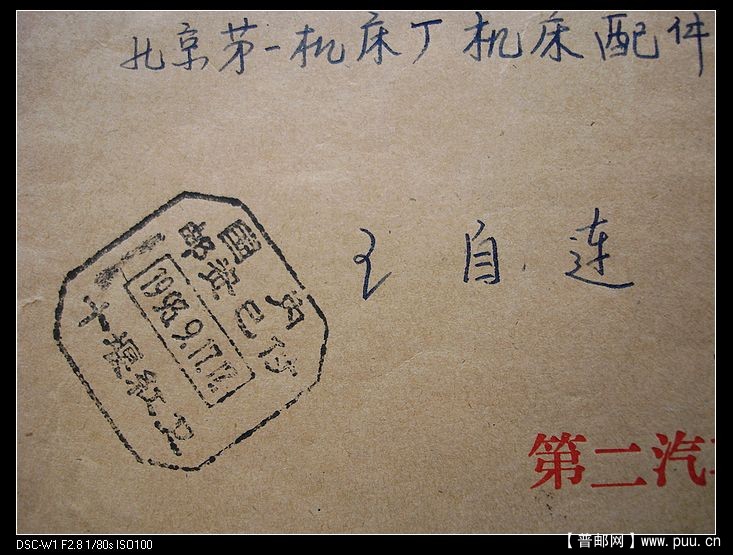 北京第一机床厂机床配件
王自连
國内
邮资已付
1993.9.17.17
十堰紅卫
第二汽
DSC-W1 F2.8 1/80s ISO100
【普邮网】www.puu.cn